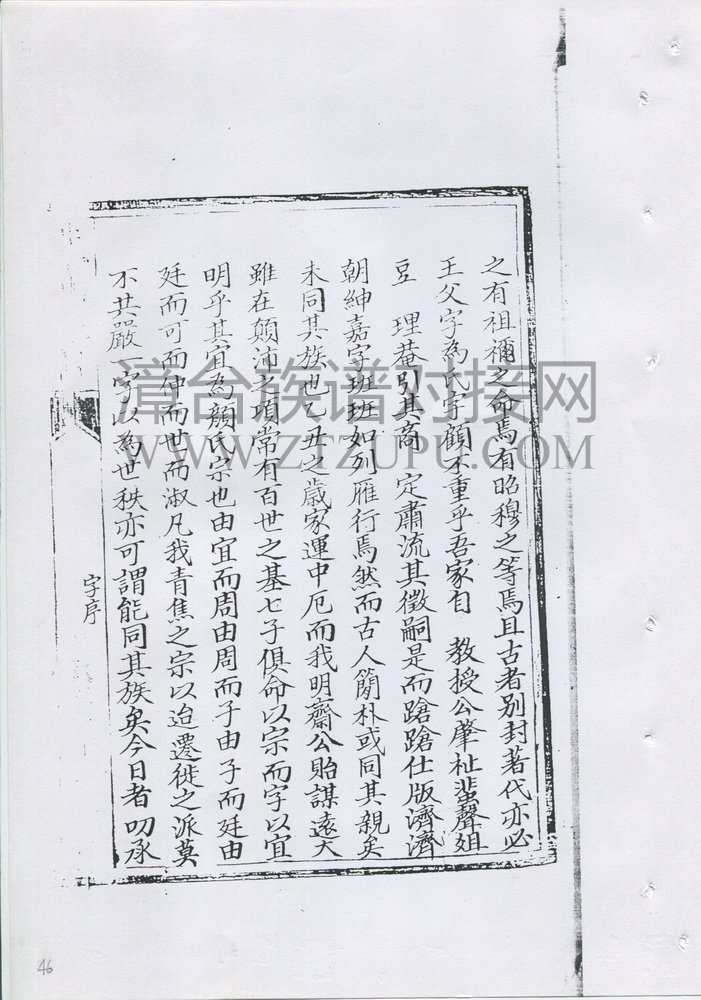 之有祖禰之命焉有昭穆之等焉且古者別封著代亦必
王父字為氏字顧不重乎吾家自 教授公肇祉蜚聲俎
豆 理菴引其商 定肅流其徵嗣是而蹌蹌仕版濟濟
朝紳嘉字班班如列雁行焉然而古人簡朴或同其親矣
未同其族也乙丑之歲家運中厄而我明齋公貽謀遠大
雖在顛沛之項常有百世之基七子俱命以宗而字以宜
明乎其宜為顏氏宗也由宜而周由周而子由子而廷由
廷而可而仲而世而淑凡我青焦之宗以迨遷徙之派莫
不共嚴一字以為世秩亦可謂能同其族矣今日者叨承
字序
漳台族谱对接网
WWW.ZTZUPU.COM
46